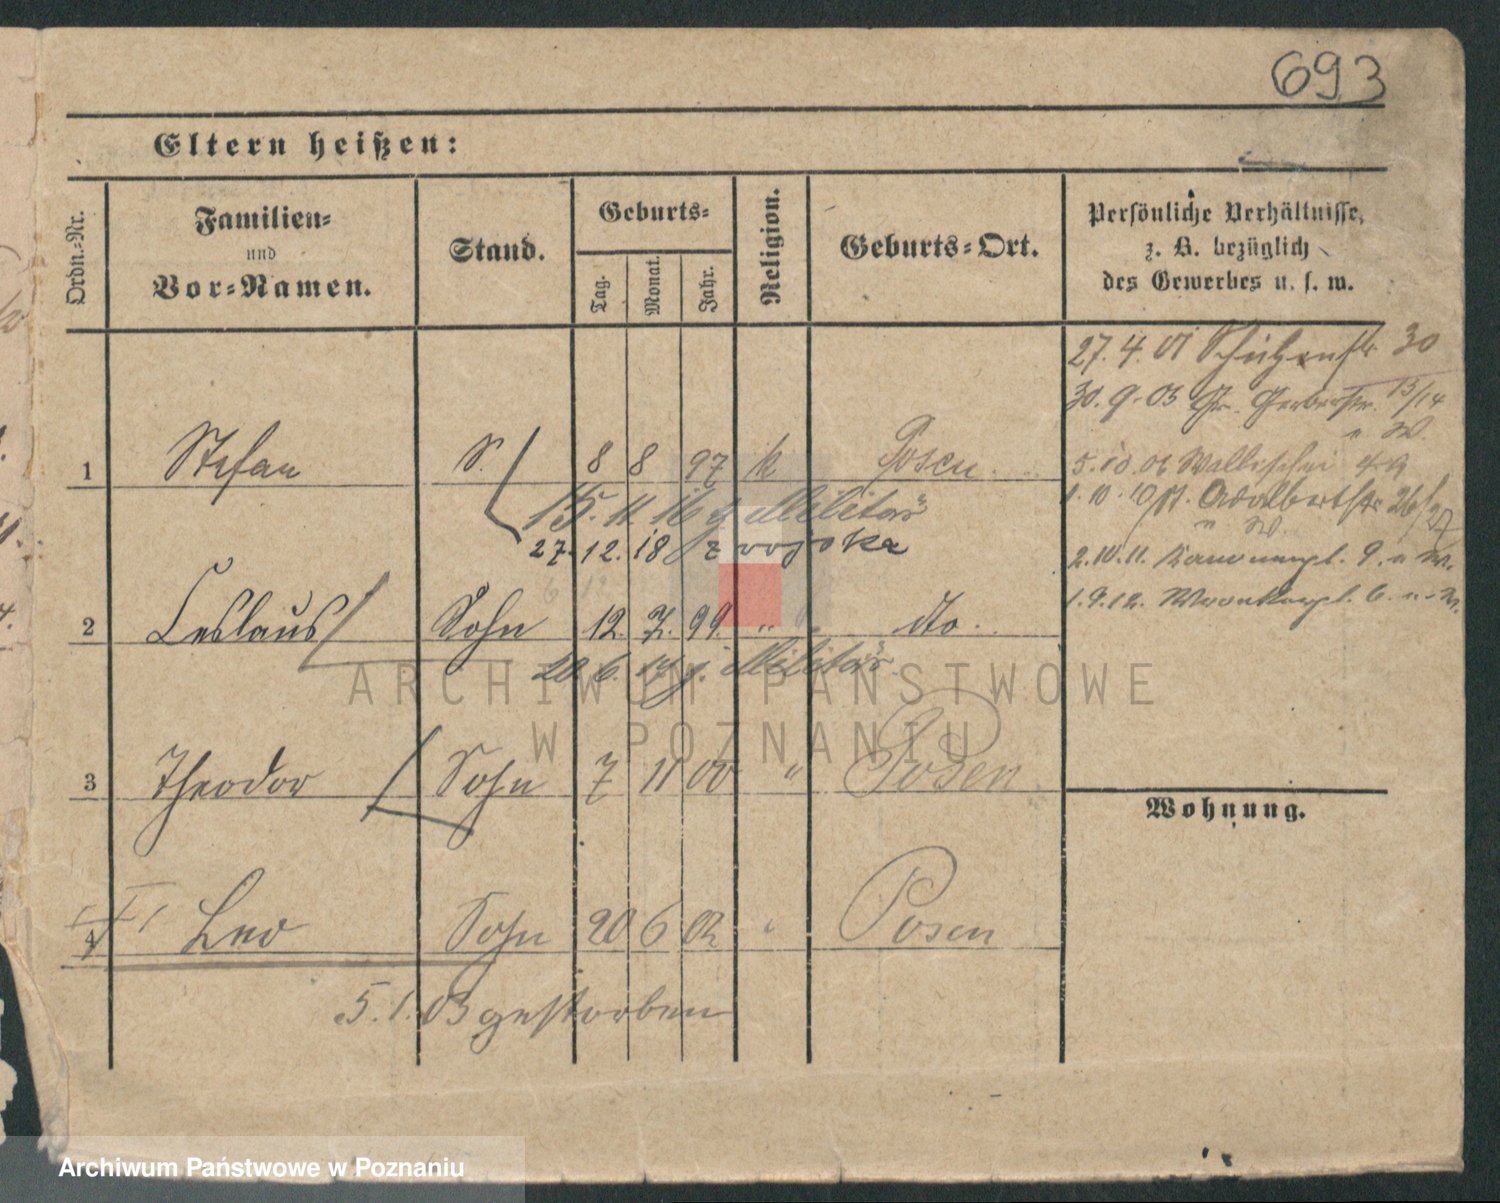 693
Eltern heißen:
Ordn.-Nr.
Familien-
und
Vor-Namen.
Stand.
Geburts-
Tag.
Monat.
Jahr.
Religion.
Geburts-Ort.
Persönliche Verhältnisse,
z. B. bezüglich
des Gewerbes u. s. w.
27. 4. 01 Schützenstr 30
30. 9. 03 Gr. Gerberstr. 13/14
" W.
1 Stefan S. 8 8 97 k Posen.
5. 10. 06 Wallischei
15. 11. 16 z. Militär
1. 10. 10 Adalbertstr 26/27
" W.
27. 12. 18 z wojska
2. 10. 11. 9. u W.
2 Ceslaus Sohn 12. 7. 99. " dto.
1. 9. 12. 6. u. W.
20 6. 17 z. Militär
3 Theodor Sohn 7 11 00 " Posen
Wohnung.
4 Leo Sohn 20 6 02 " Posen
5. 1. 03 gestorben
ARCHIWUM PAŃSTWOWE
W POZNANIU
Archiwum Państwowe w Poznaniu